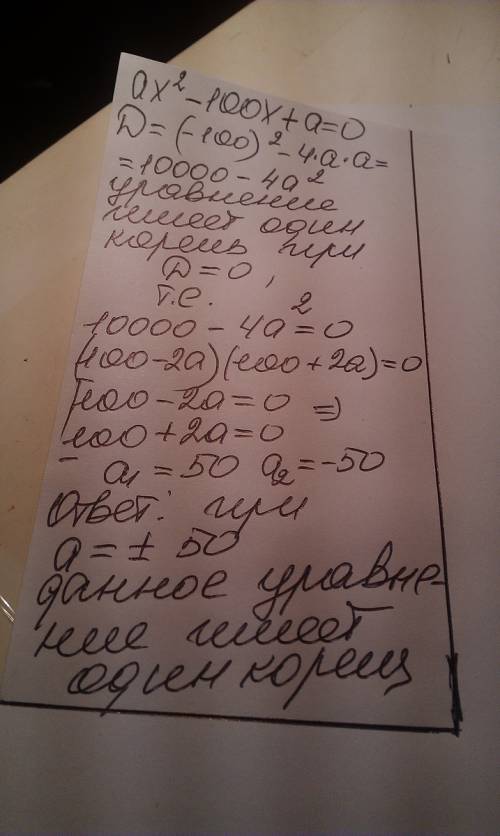 ax² - 100x + a = 0
D = (-100)² - 4·a·a =
= 10000 - 4a²
уравнение
имеет один
корень при
D = 0,
т.е.
10000 - 4a² = 0
(100 - 2a)(100 + 2a) = 0
[100 - 2a = 0 =>
100 + 2a = 0
a₁ = 50 a₂ = -50
Ответ: при
a = ± 50
данное уравне-
ние имеет
один корень